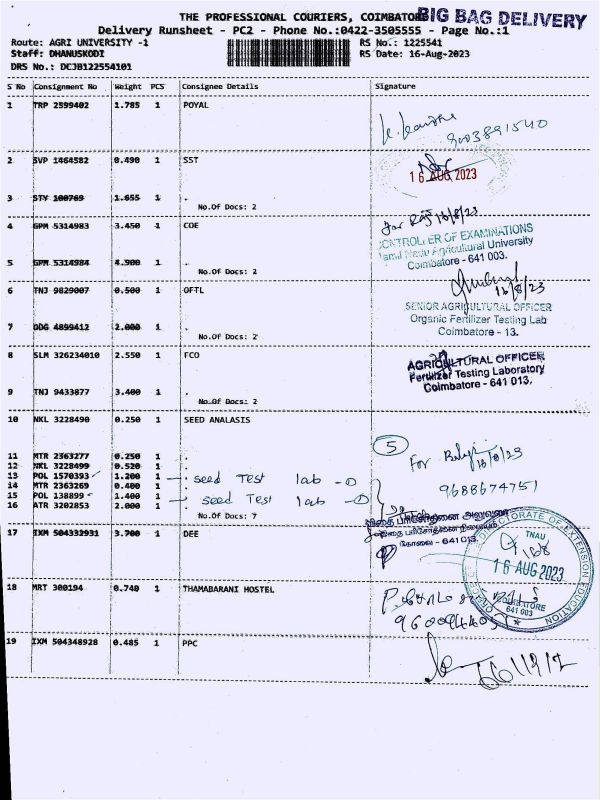 THE PROFESSIONAL COURIERS, COIMBATORE
BIG BAG DELIVERY
Delivery Runsheet - PC2 - Phone No.:0422-3505555 - Page No.:1
Route: AGRI UNIVERSITY -1 RS No.: 1225541
Staff: DHANUSKODI RS Date: 16-Aug-2023
DRS No.: DCJB122554101
S No Consignment No Weight PCS Consignee Details Signature
1 TRP 2599402 1.785 1 POYAL
9003891540
2 SVP 1464582 0.490 1 SST
16 AUG 2023
3 STY 100769 1.655 1 .
No.Of Docs: 2
for Raj 16/8/23
4 GPM 5314983 3.450 1 COE
CONTROLLER OF EXAMINATIONS
Tamil Nadu Agricultural University
Coimbatore - 641 003.
5 GPM 5314984 4.900 1 .
No.Of Docs: 2
16/8/23
6 TNJ 9829007 0.500 1 OFTL
SENIOR AGRICULTURAL OFFICER
Organic Fertilizer Testing Lab
Coimbatore - 13.
7 ODG 4899412 2.000 1 .
No.Of Docs: 2
8 SLM 326234010 2.550 1 FCO
AGRICULTURAL OFFICER
Fertilizer Testing Laboratory
Coimbatore - 641 013.
9 TNJ 9433877 3.400 1 .
No.Of Docs: 2
10 NKL 3228490 0.250 1 SEED ANALASIS
5
For Balaji 16/8/23
11 MTR 2363277 0.250 1 .
12 NKL 3228499 0.520 1 .
13 POL 1570393 1.200 1 . seed Test lab
14 MTR 2363269 0.400 1 .
9688674751
15 POL 138899 1.400 1 . seed Test lab
16 ATR 3202853 2.000 1 .
No.Of Docs: 7
விதை பரிசோதனை அலுவலர்
விதை பரிசோதனை நிலையம்
கோவை - 641 013.
17 IXM 504332931 3.700 1 DEE
DIRECTORATE OF EXTENSION EDUCATION
TNAU
16 AUG 2023
COIMBATORE
641 003
18 MRT 300194 0.740 1 THAMABARANI HOSTEL
19 IXM 504348928 0.485 1 PPC